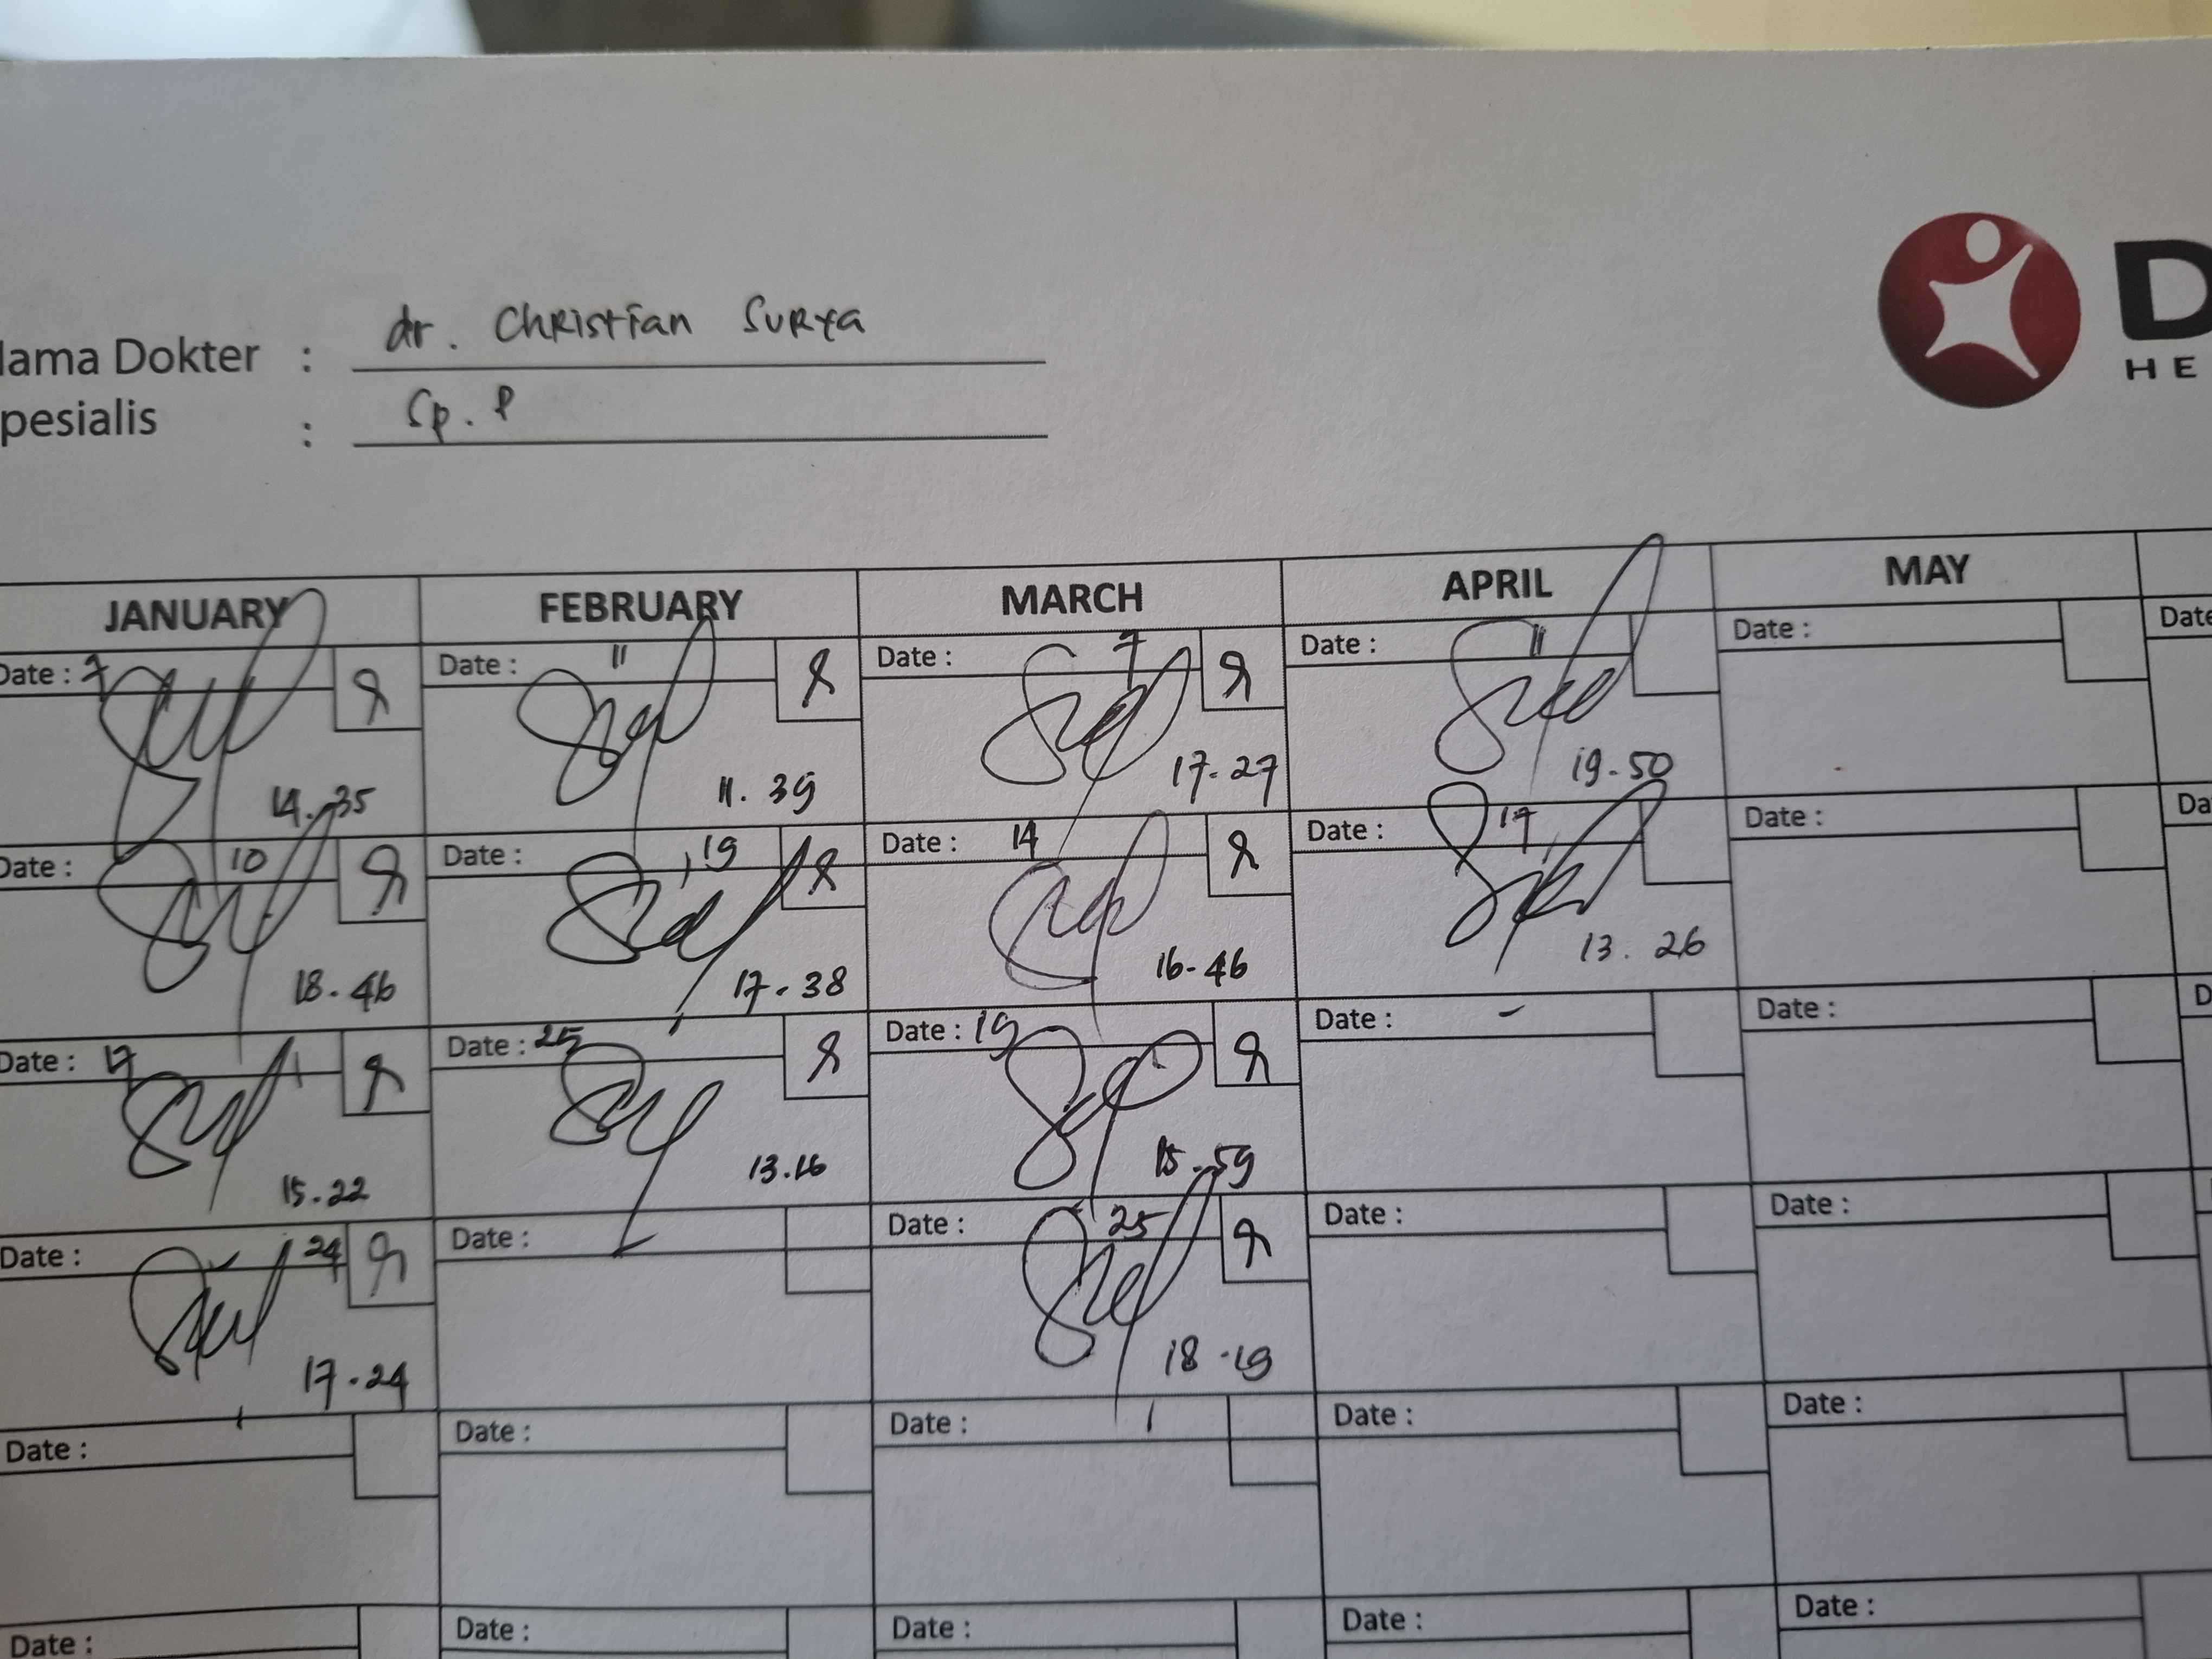 lama Dokter : dr. Christian Surya
pesialis : Sp. P
D
HE
JANUARY FEBRUARY MARCH APRIL MAY
Date : 7 Date : 11 Date : 7 Date : 11 Date : Date
14.35 11.39 17-27 19-50
Date : 10 Date : 19 Date : 14 Date : 17 Date : Da
18-46 17-38 16-46 13.26
Date : 17 Date : 25 Date : 19 Date : - Date : D
15-22 13.16 15-59
Date : 24 Date : Date : 25 Date : Date :
17-24 18-19
Date : Date : Date : Date : Date :
Date : Date : Date : Date : Date :